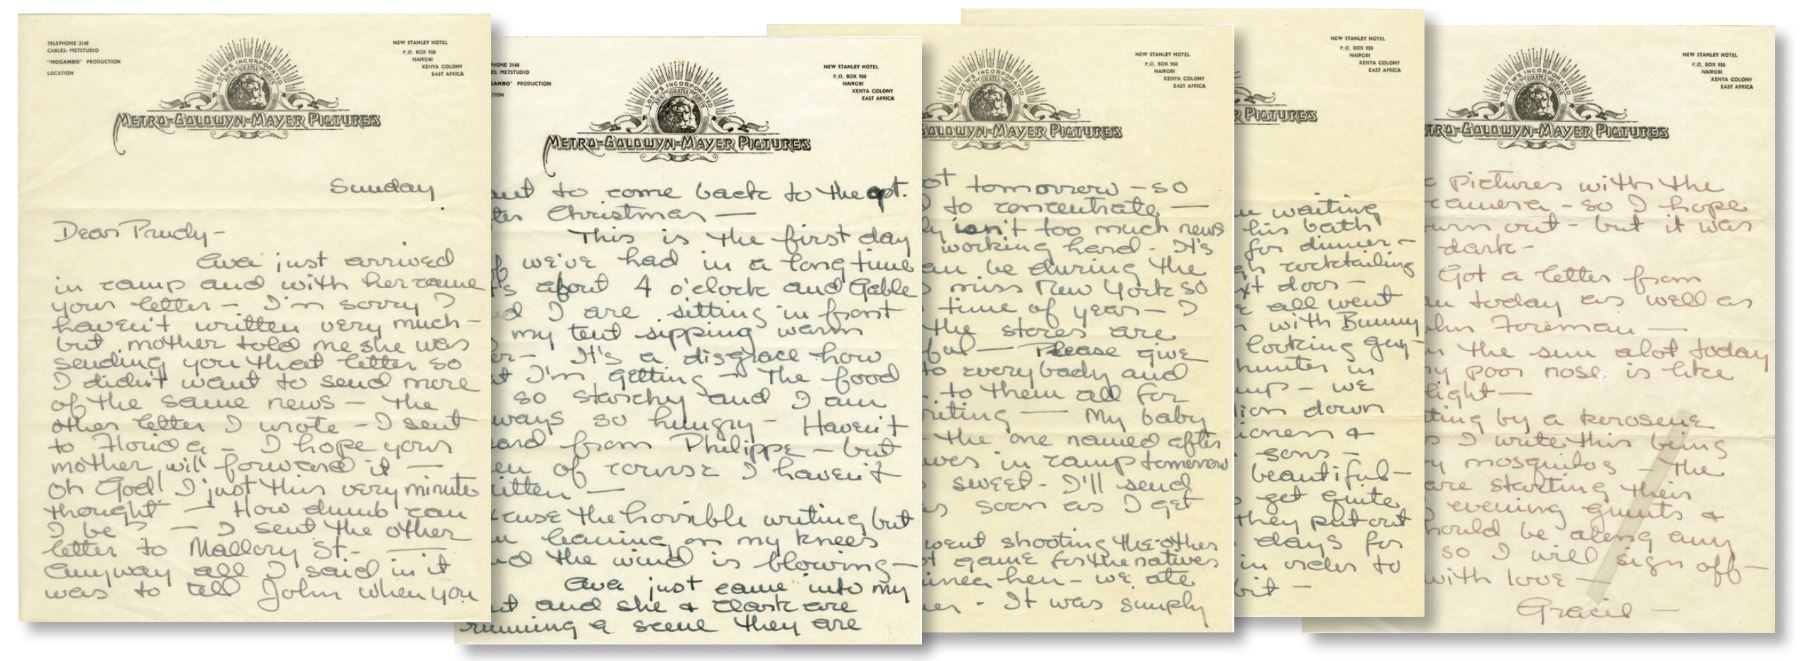 TELEPHONE 3140
CABLES: METSTUDIO
"MOGAMBO" PRODUCTION
LOCATION
NEW STANLEY HOTEL
P.O. BOX 950
NAIROBI
KENYA COLONY
EAST AFRICA
LOEW'S INCORPORATED
METRO-GOLDWYN-MAYER PICTURES
Sunday
Dear Prudy-
Ava just arrived
in camp and with her came
your letter - I'm sorry I
haven't written very much -
but mother told me she was
sending you that letter so
I didn't want to send more
of the same news - The
other letter I wrote - I sent
to Florida - I hope your
mother will forward it -
oh God! I just this very minute
thought - How dumb can
I be? - I sent the other
letter to Mallory St. -
Anyway all I said in it
was to tell John when you
PHONE 3140
ES: METSTUDIO
GAMBO" PRODUCTION
TION
NEW STANLEY HOTEL
P.O. BOX 950
NAIROBI
KENYA COLONY
EAST AFRICA
LOEW'S INCORPORATED
METRO-GOLDWYN-MAYER PICTURES
to come back to the apt.
Christmas -
This is the first day
we've had in a long time
about 4 o'clock and Gable
I are sitting in front
my tent sipping warm
It's a disgrace how
I'm getting - The food
so starchy and I am
ways so hungry - Haven't
from Philippe - but
of course I haven't
itten -
cause the horrible writing but
leaning on my knees
the wind is blowing -
Ava just came into my
and she & Clark are
running a scene they are
NEW STANLEY HOTEL
P.O. BOX 950
NAIROBI
KENYA COLONY
EAST AFRICA
LOEW'S INCORPORATED
GOLDWYN-MAYER PICTURES
ot tomorrow - so
to concentrate -
ly isn't too much news
working hard - It's
an be during the
miss New York so
time of year - I
the stores are
ful - Please give
to everybody and
to them all for
riting - My baby
the one named after
ves in camp tomorrow
sweet - I'll send
as soon as I get
went shooting the other
game for the natives
inea hen - we ate
er - It was simply
NEW STANLEY HOTEL
P.O. BOX 950
NAIROBI
KENYA COLONY
EAST AFRICA
YER PICTURES
waiting
his bath
for dinner -
cocktailing
xt door -
all went
with Bunny
looking guy -
hunter in
mp - we
lion down
ioners &
sons -
beautiful -
get quite
they put out
days for
in order to
bit -
NEW STANLEY HOTEL
P.O. BOX 950
NAIROBI
KENYA COLONY
EAST AFRICA
LOEW'S INCORPORATED
TRO-GOLDWYN-MAYER PICTURES
pictures with the
camera - so I hope
turn out - but it was
dark -
Got a letter from
today as well as
John Foreman -
the sun alot today
my poor nose is like
light -
ting by a kerosene
I write this being
mosquitos - The
are starting their
evening grunts &
hould be along any
so I will sign off -
with love -
Gracie -